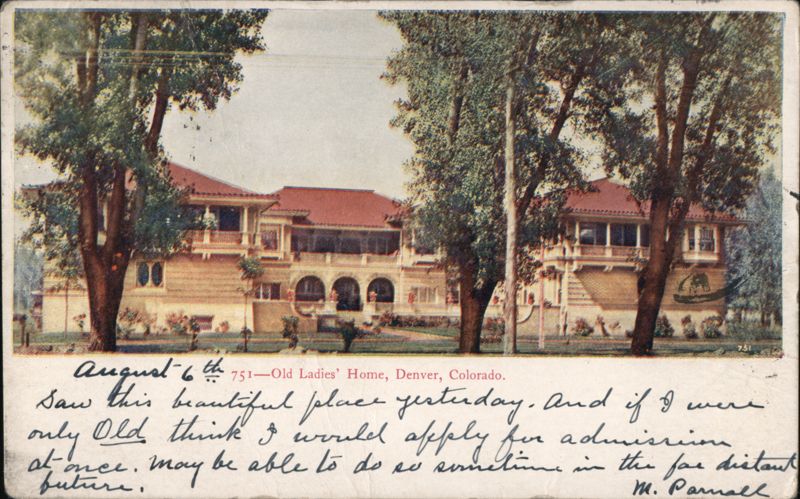 751
August 6th 751—Old Ladies' Home, Denver, Colorado.
Saw this beautiful place yesterday. And if I were
only Old think I would apply for admission
at once. May be able to do so sometime in the far distant
future. M. Parnall